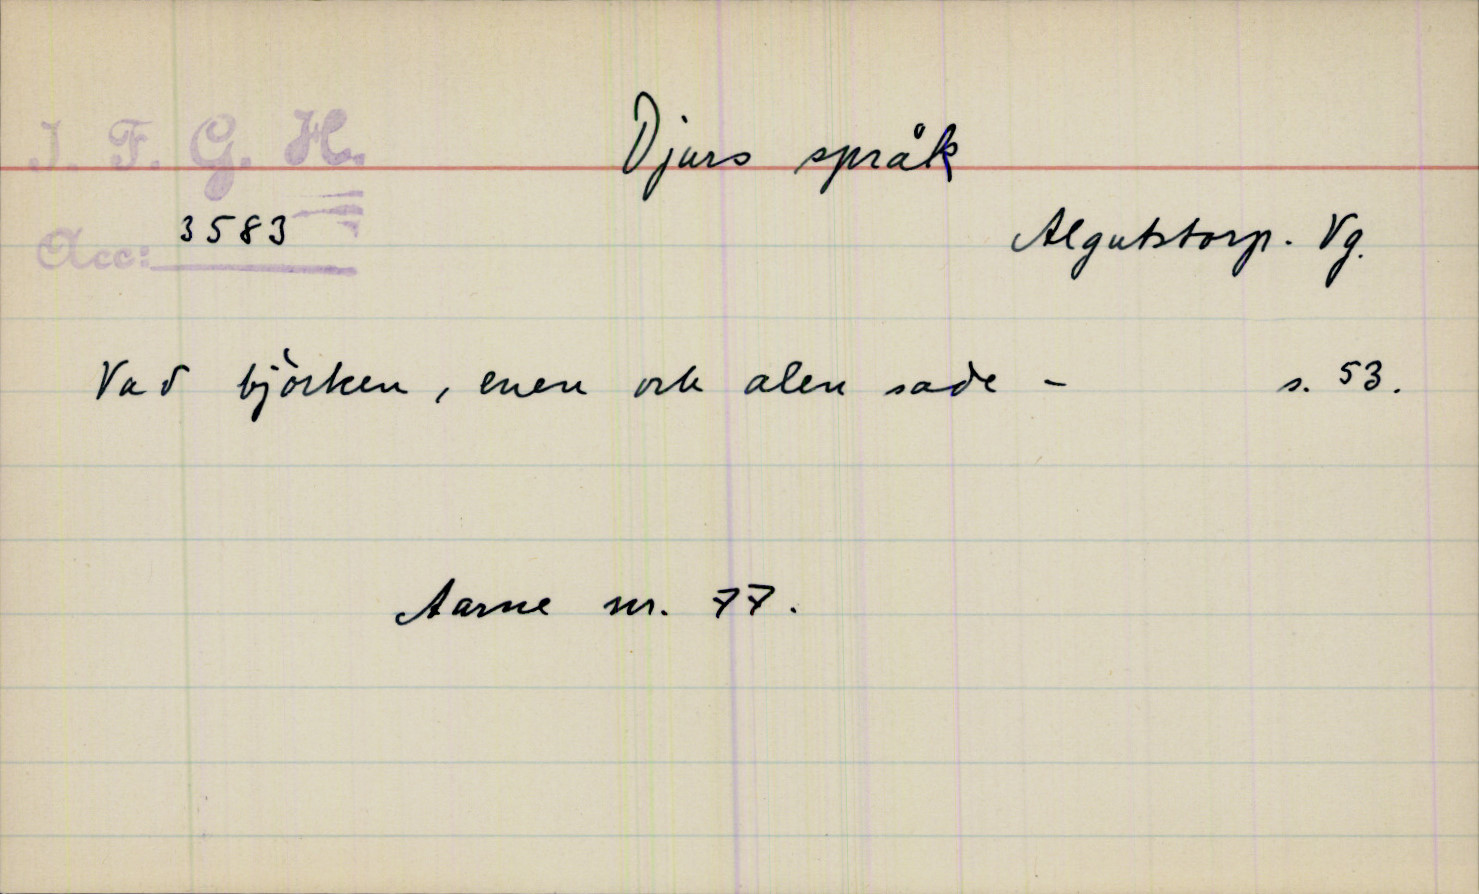 I. F. G. H.
Djurs språk
Acc: 3583
Algutstorp. Vg.
Vad björken, enen och alen sade - s. 53.
Aarne nr. 77.